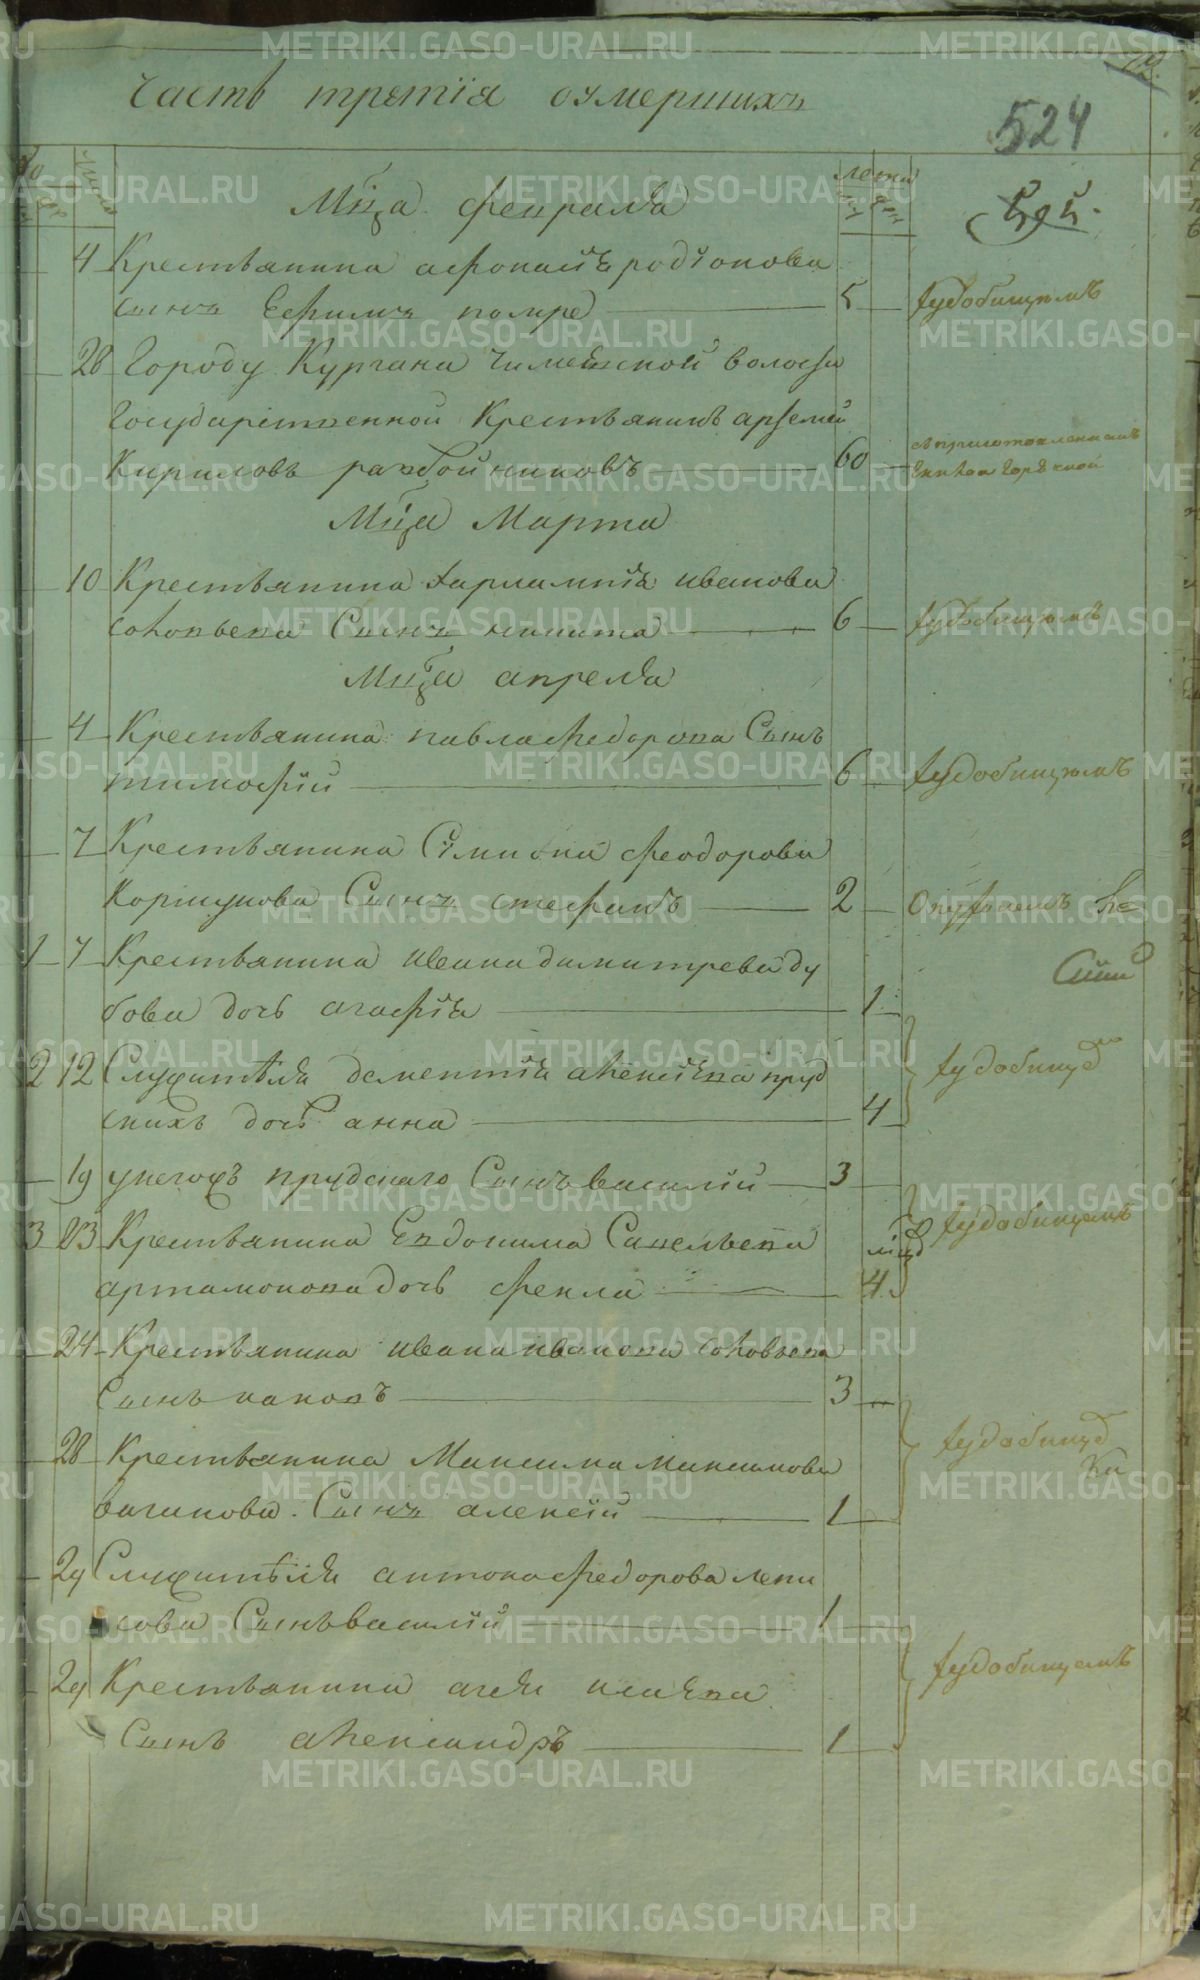 часть третiя оумершихъ
524
лета
Мца февраля
4 Крестьянина афонасiя родiонова
сынъ Ефимъ помре 5 худобищемъ
28 Городу Кургана Чимеевской волости
Государственной Крестьянинъ артемей
Кириловъ разбойниковъ 60
Мца Марта
10 Крестьянина харлампiя иванова
соловьева Сынъ никита 6 худобищемъ
Мца апреля
4 Крестьянина павла федорова Сынъ
тимофiй 6 худобищемъ
7 Крестьянина Симиона феодорова
Коршунова Сынъ стефанъ 2
1 7 Крестьянина ивана димитрева ду
бова дочь агафiя 1
2 12 Служителя дементiя алексiева пруд
скихъ дочь анна 4 худобищемъ
19 унегожъ прудскаго Сынъ василiй 3
3 23 Крестьянина Евдокима Савельева худобищемъ
артамонова дочь фекла 4
24 Крестьянина ивана иванова соловьева
Сынъ 3
28 Крестьянина Максима Максимова
ваганова Сынъ алексiй 1
29 Служителя антона федорова лепи
хова Сынъ василiй 1
29 Крестьянина исакова худобищемъ
Сынъ александръ 1
METRIKI.GASO-URAL.RU